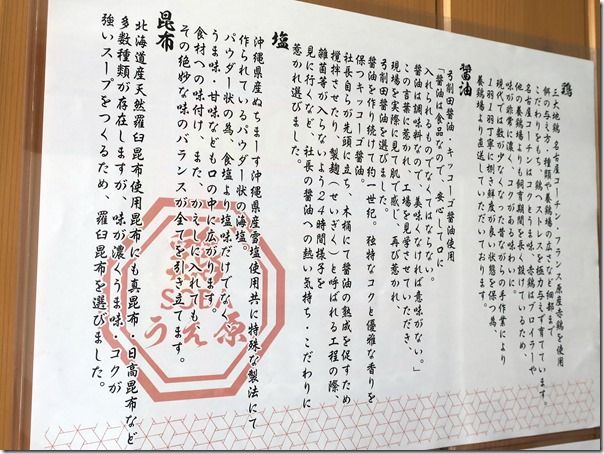 鶏
三大地鶏 名古屋コーチン、フランス原産赤鶏を使用
餌の与え方・種類や養鶏場の広さなど細部まで
こだわりをもち、鶏へストレスを極力与えず育てています。
名古屋コーチンはコクとうま味、赤鶏はブロイラーや
他の養鶏場よりも飼育期間を長く設けているため、
味が非常に濃く、コクがある味わいに。
現代では数が少なくなった昔ながらの手作業により
1羽1羽丁寧に捌き鮮度が良い状態を保つ為、
養鶏場より直送していただいております。
醤油
弓削田醤油 キッコーゴ醤油使用
「醤油は食品なので、安心して口に
入れられるものでなくてはならない。
醤油は調味料なので、美味しくなければ意味がない。」
この言葉に惹かれ、工場を見学させていただき、
現場を実際に見て肌で感じ、再び惹かれ
弓削田醤油を選びました。
醤油を作り続けて約一世紀。独特なコクと優雅な香りを
保つキッコーゴ醤油。
社長自らが先頭に立ち、木桶にて醤油の熟成を促すため
撹拌させたり、製麹(せいぎく)と呼ばれる工程の際、
雑菌等が入らないよう24時間様子を
見に行くなど、社長の醤油への熱い気持ち・こだわりに
惹かれ選びました。
塩
沖縄県産ぬちまーす沖縄県産雪塩使用共に特殊な製法にて
作られているパウダー状の海塩。
パウダー状の為、食塩より塩味だけでな
うま味・甘味なども口の中に広がります。
食材への味付け、また、かえしに入れても、
その絶妙な味のバランスが全てを引き立てます。
昆布
北海道産天然羅臼昆布使用昆布にも真昆布・日高昆布など
多数種類が存在しますが、味が濃くうま味・コクが
強いスープをつくるため、羅臼昆布を選びました。
うえ原